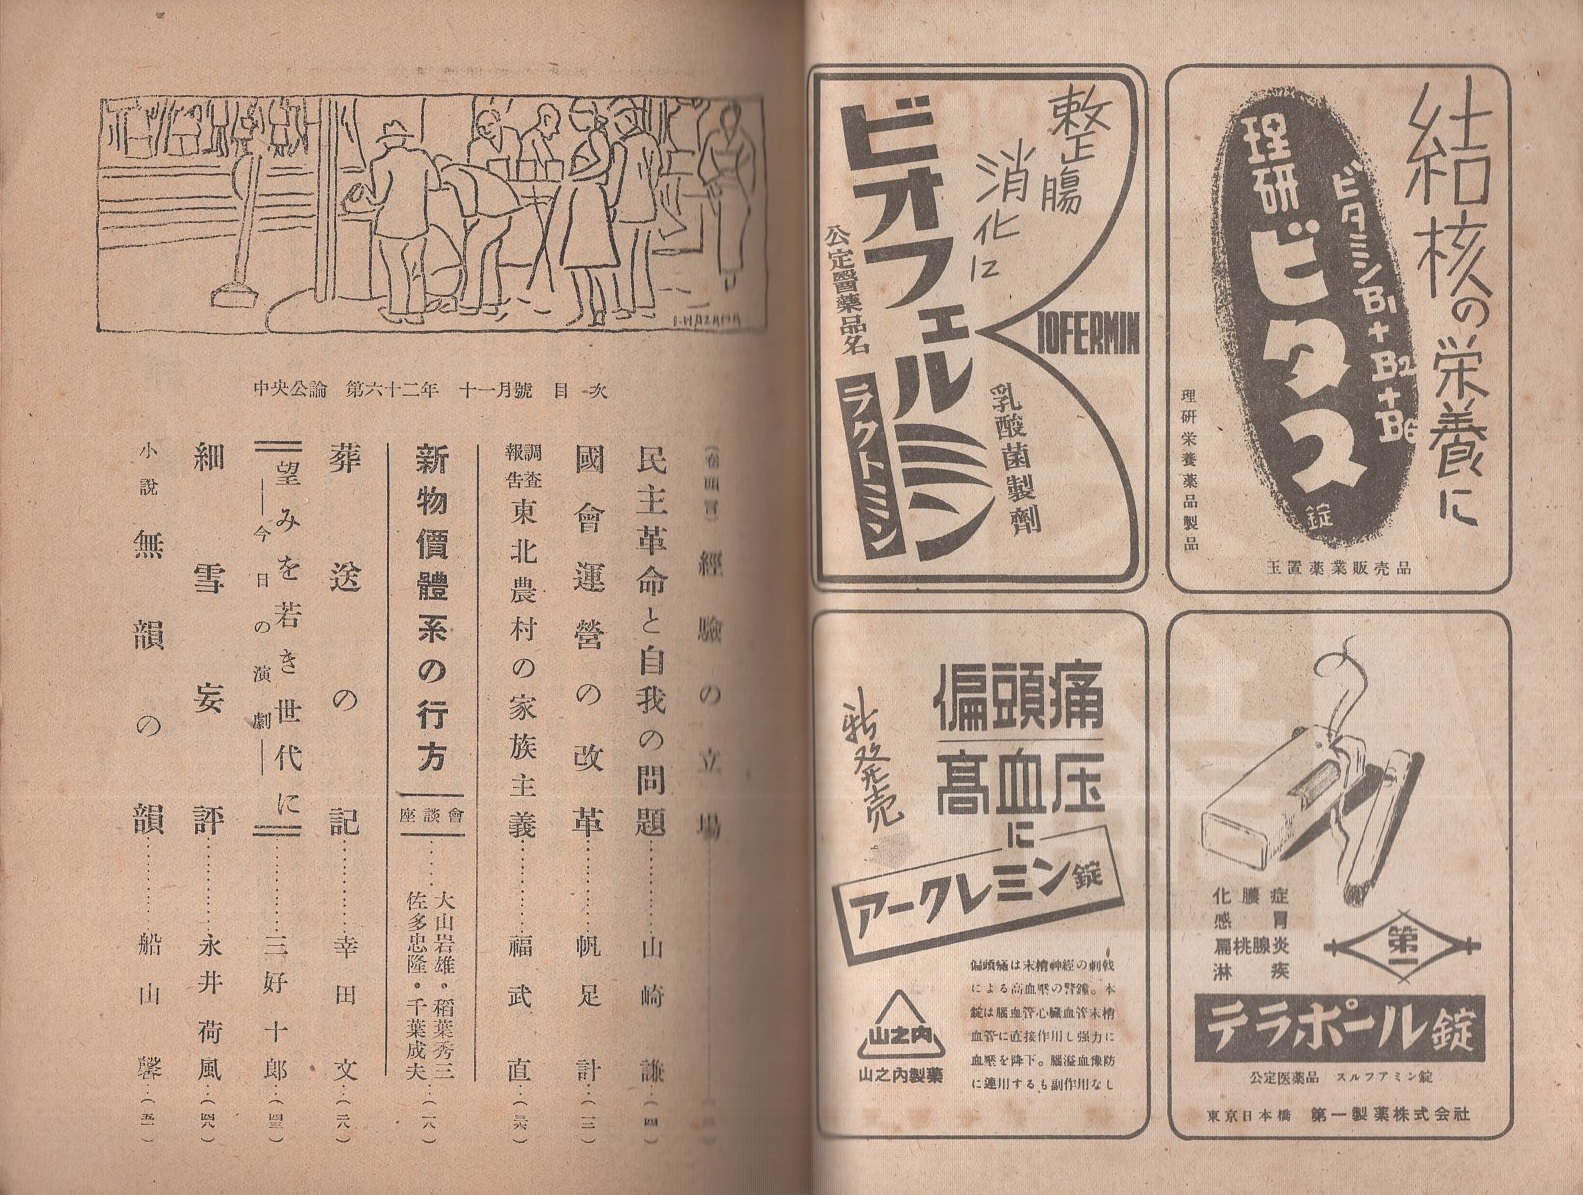 結核の栄養に
ビタミンB1+B2+B6
理研ビタス
錠
理研栄養薬品製品
玉置薬業販売品
整腸
消化に
ビオフェルミン
公定醫藥品名
ラクトミン
BIOFERMIN
乳酸菌製劑
化膿症
感冒
扁桃腺炎
淋疾
第一
テラポール錠
公定医薬品 スルフアミン錠
東京日本橋 第一製薬株式会社
偏頭痛
高血圧
に
新発売
アークレミン錠
偏頭痛は末梢神経の刺戟
による高血壓の警鐘。本
錠は脳血管心臓血管末梢
血管に直接作用し强力に
血壓を降下。脳溢血豫防
に連用するも副作用なし
山之内
山之内製薬
I.HAZAMA
中央公論 第六十二年 十一月號 目次
(卷頭言) 經驗の立場
民主革命と自我の問題 山崎謙 (四)
國會運營の改革 帆足計 (一三)
調査報告 東北農村の家族主義 福武直
新物價體系の行方 座談會 大山岩雄・稻葉秀三 佐多忠隆・千葉成夫 (一八)
葬送の記 幸田文
望みを若き世代に
―今日の演劇― 三好十郎
細雪妄評 永井荷風
小説 無韻の韻 船山馨